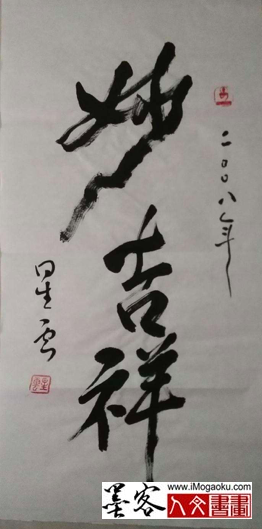 二〇〇八年
妙吉祥
星云
墨客
www.iMogaoku.com
人文書畫